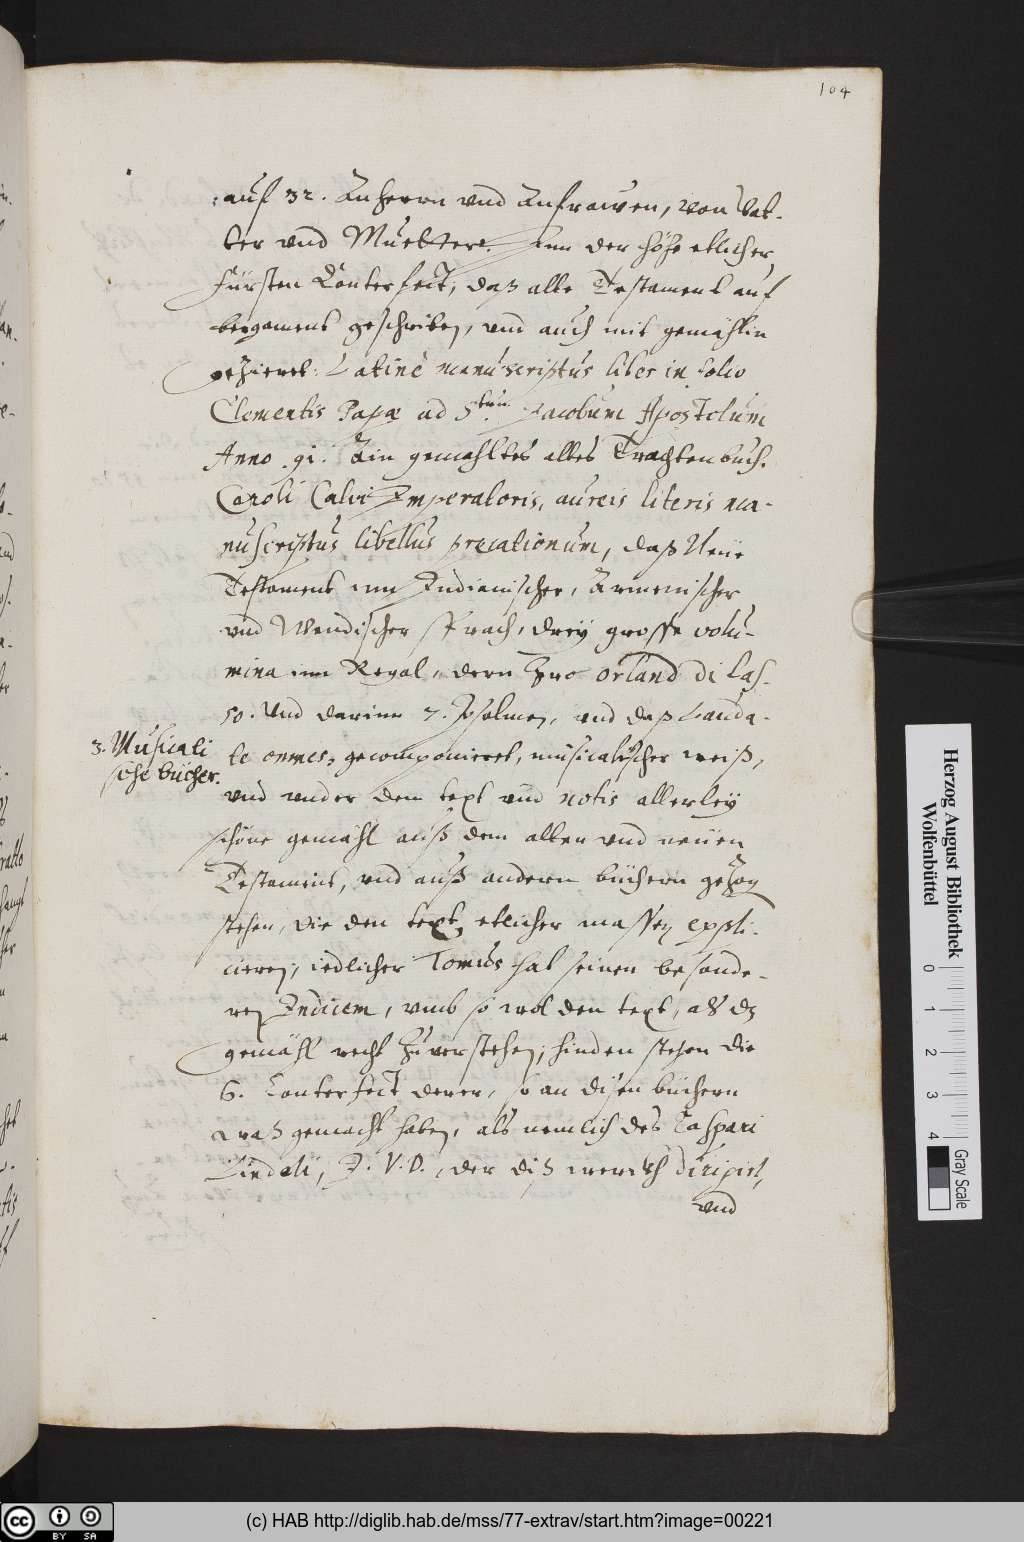 104
auf 32. Anherrn vnd Anfrawen, von Vat-
ter vnd Muetter. Inn der höhe etlicher
Fürsten Conterfeit, daß alte Testament auf
bergament geschriben, vnd auch mit gemählin
gezieret: Latinè manuscriptus liber in folio
Clementis Papæ ad Stum. Jacobum Apostolum
Anno .91. Ain gemahltes altes Trachtenbuch.
Caroli Calvi Imperatoris, aureis literis ma-
nuscriptus libellus precationum, daß Neüe
Testament inn Indianischer, Armenischer
vnd Wendischer sprach, drey grosse volu-
mina inn Regal, dern zwo Orland di Las.
50. vnd darinn 7. Psalmen, vnd daß Lauda-
3. Musicali
sche bücher.
te omnes, gecomponieret, musicalischer weiß,
vnd vnder dem text vnd notis allerley
schöne gemähl auß dem alten vnd neüen
Testament, vnd auß andern büchern gezogen
stehen, die den text etlicher massen expli-
cieren, iedlicher Tomus hat seinen besonde-
ren Indicem, vmb so wol den text, als dz
gemähl recht zuverstehen, hinden stehen die
6. Conterfeit deren, so an disen büchern
waß gemacht haben, als nemlich des Caspari
Lindeli, J. V. D., der diß werckh dirigirt,
vnd
Herzog August Bibliothek
Wolfenbüttel
0 1 2 3 4
Gray Scale
cc BY SA
(c) HAB http://diglib.hab.de/mss/77-extrav/start.htm?image=00221